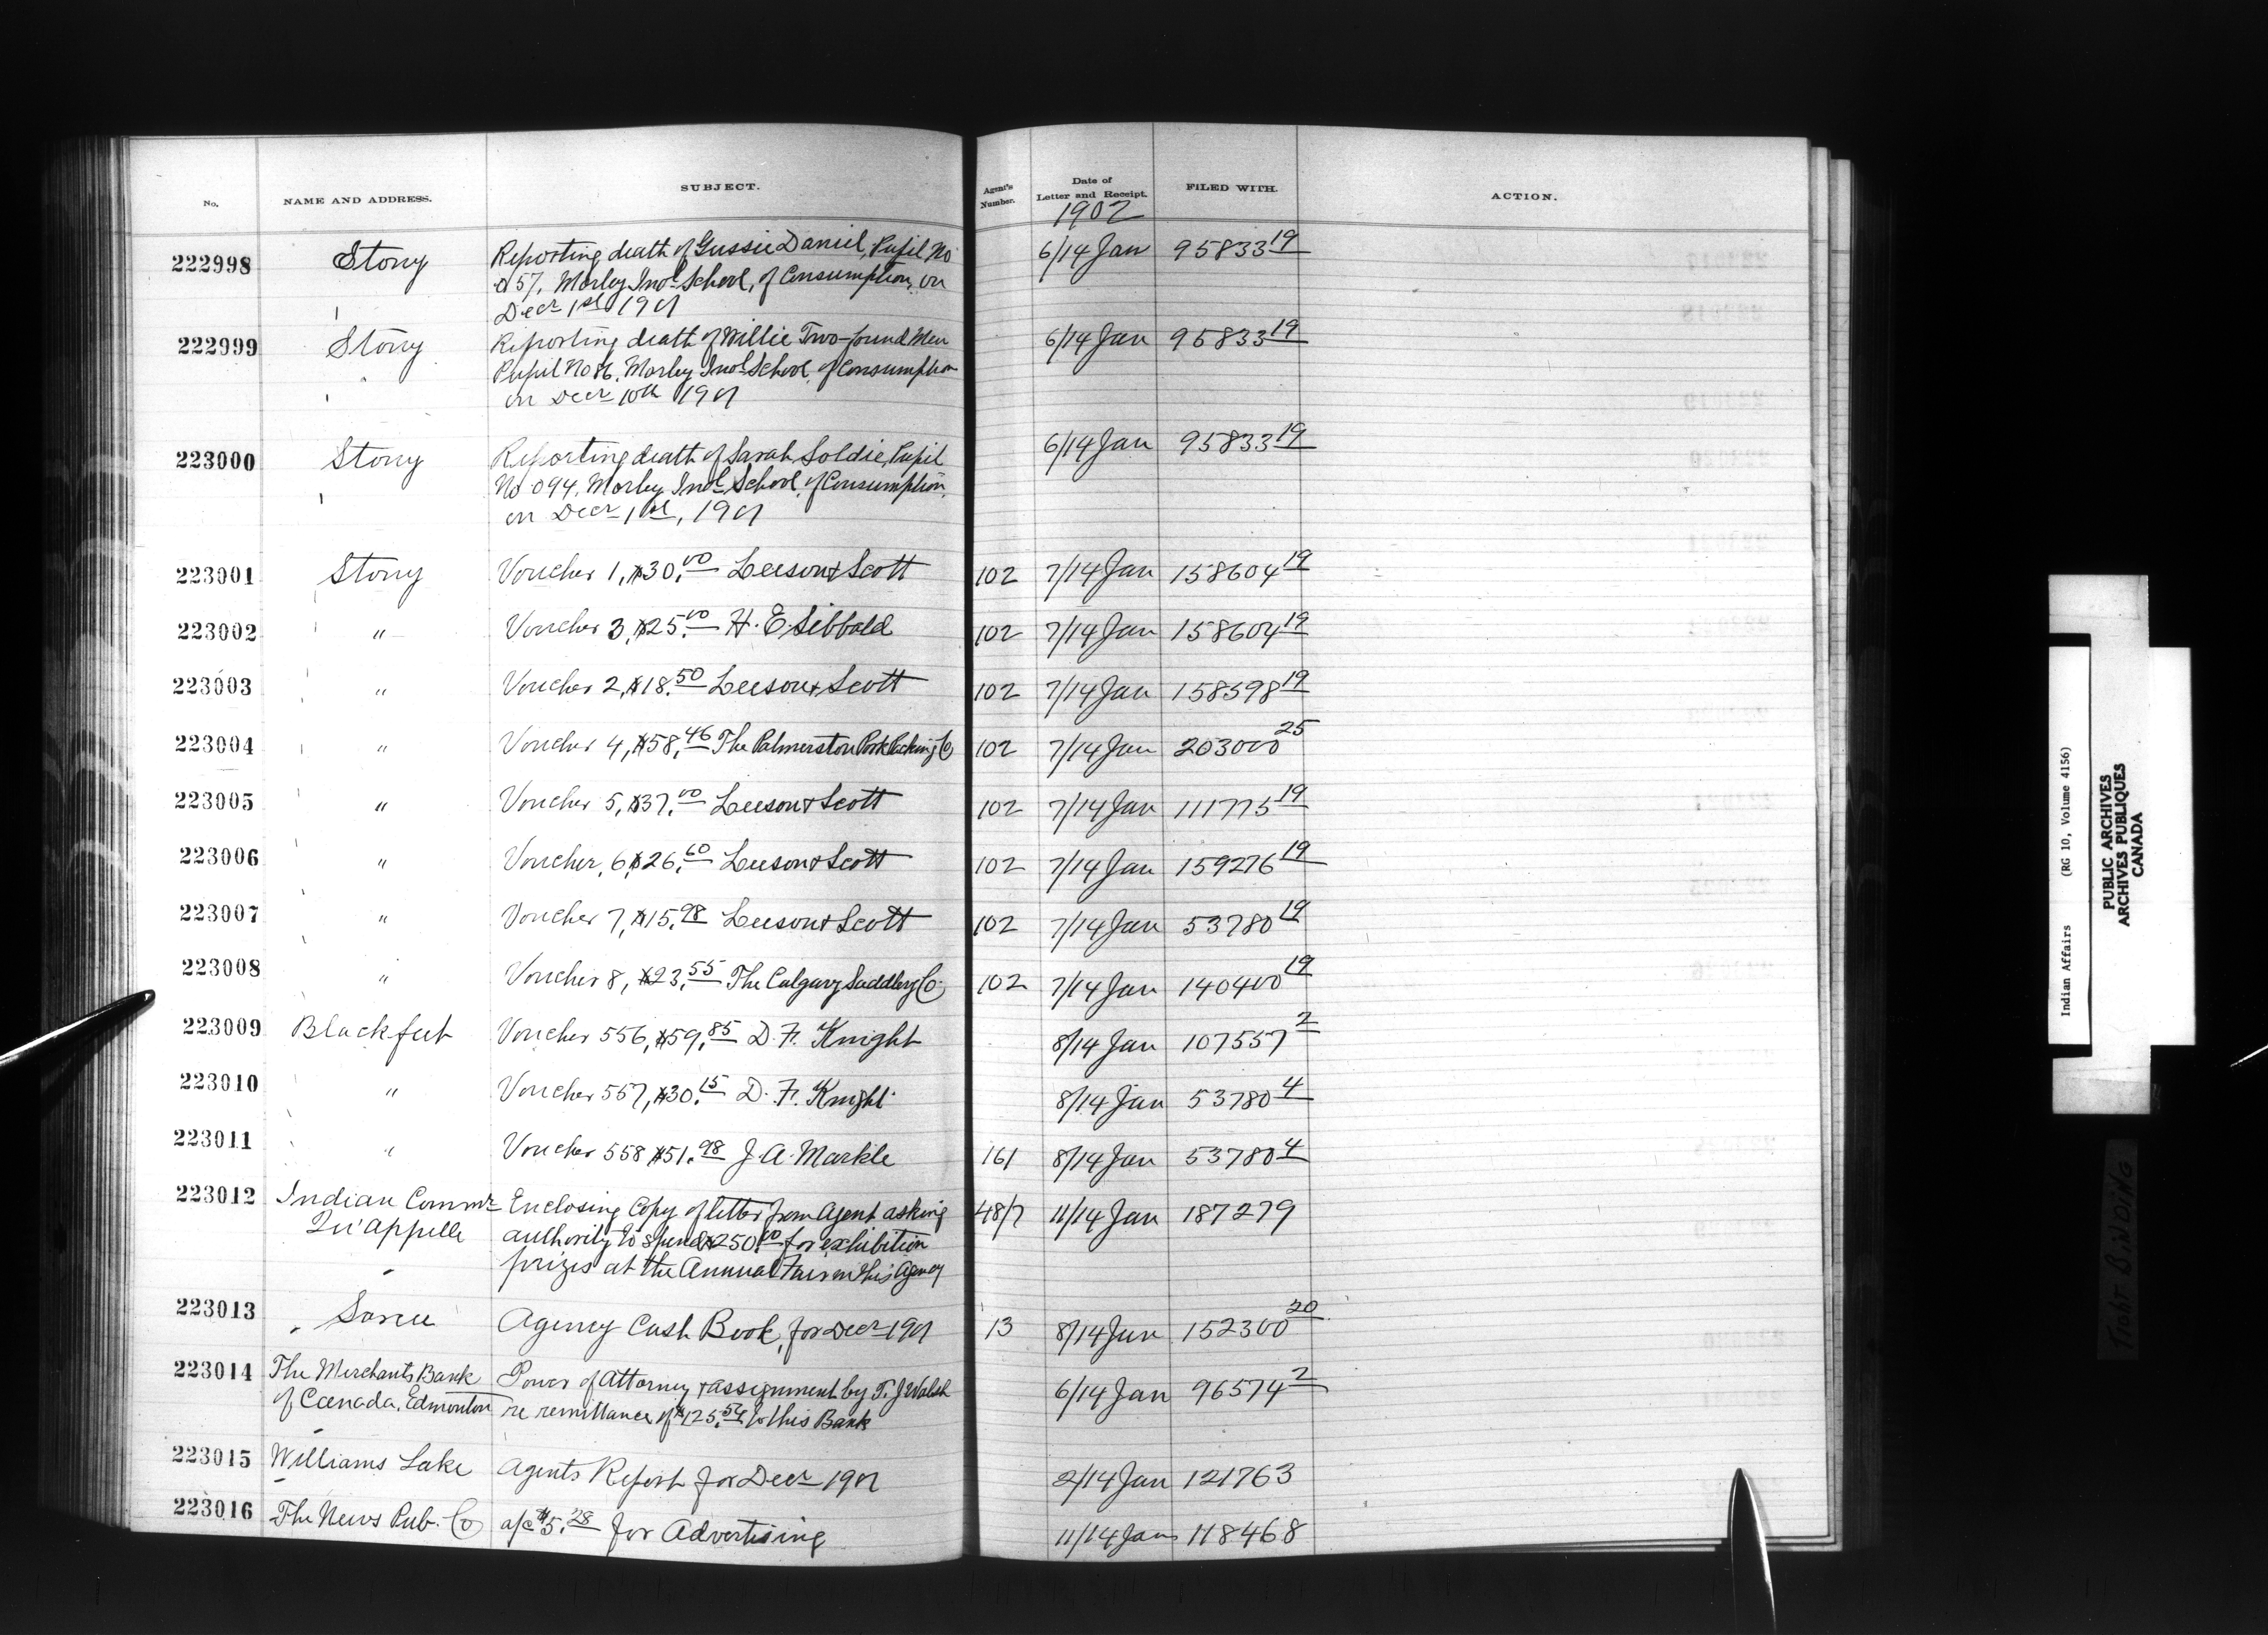 No. NAME AND ADDRESS. SUBJECT. Agent's Number. Date of Letter and Receipt. FILED WITH. ACTION.
1902
222998 Stony Reporting death of Gussie Daniel, Pupil No 6/14 Jan 95833 19
057, Morley Indl School, of Consumption, on
Decr 1st 1901
222999 Stony Reporting death of Willie Two-found Men 6/14 Jan 95833 19
Pupil No 86, Morley Indl School, of Consumption
on Decr 10th 1901
223000 Stony Reporting death of Sarah Soldie, Pupil 6/14 Jan 95833 19
No 094, Morley Indl School, of Consumption,
on Decr 1st, 1901
223001 Stony Voucher 1, $30.00 Leeson & Scott 102 7/14 Jan 158604 19
223002 " Voucher 3, $25.00 H. E. Sibbald 102 7/14 Jan 158604 19
223003 " Voucher 2, $18.50 Leeson & Scott 102 7/14 Jan 158598 19
223004 " Voucher 4, $58.46 The Palmerston Pork Packing Co 102 7/14 Jan 203000 25
223005 " Voucher 5, $37.00 Leeson & Scott 102 7/14 Jan 111775 19
223006 " Voucher, 6, $26.60 Leeson & Scott 102 7/14 Jan 159276 19
223007 " Voucher 7, $15.98 Leeson & Scott 102 7/14 Jan 53780 19
223008 " Voucher 8, $23.55 The Calgary Saddlery Co. 102 7/14 Jan 140400 19
223009 Blackfeet Voucher 556, $59.85 D. F. Knight 8/14 Jan 107557 2
223010 " Voucher 557, $30.15 D. F. Knight 8/14 Jan 53780 4
223011 " Voucher 558 $51.98 J. A. Markle 161 8/14 Jan 53780 4
223012 Indian Commr Enclosing Copy of letter from Agent asking 48/7 11/14 Jan 187279
Qu'appelle authority to spend $250.00 for exhibition
prizes at the Annual Fair on this Agency
223013 Sarcee Agency Cash Book, for Decr 1901 13 8/14 Jan 152300 20
223014 The Merchants Bank Power of Attorney & assignment by T. J Walsh 6/14 Jan 96574 2
of Canada, Edmonton re remittance of $125.54 to this Bank
223015 Williams Lake Agents Report for Decr 1901 2/14 Jan 121763
223016 The News Pub. Co a/c $5.28 for Advertising 11/14 Jan 118468
Indian Affairs (RG 10, Volume 4156)
PUBLIC ARCHIVES
ARCHIVES PUBLIQUES
CANADA
Tight BINDING